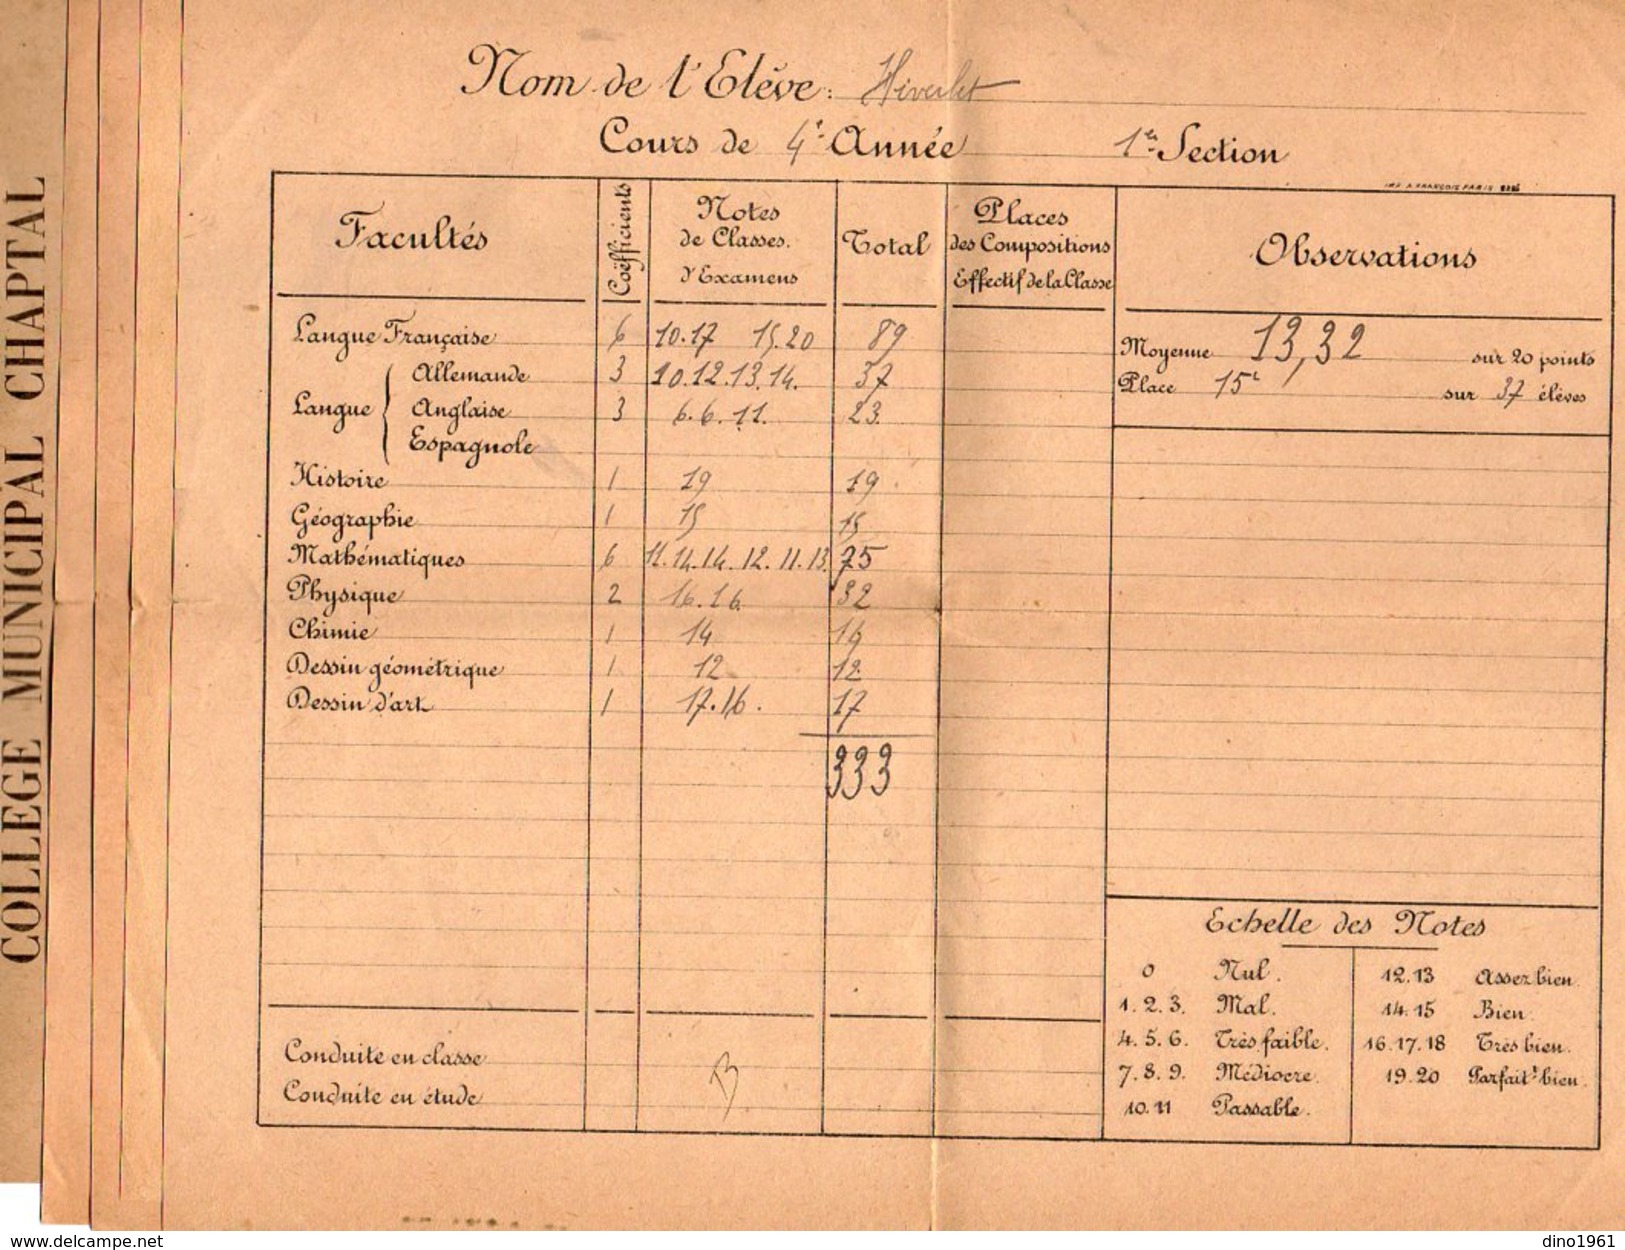 COLLEGE MUNICIPAL CHAPTAL
Nom de l'Elève: Hiverlet
Cours de 4e Année 1ère Section
IMP. A. FRANÇOIS. PARIS
Facultés Coëfficients Notes de Classes. d'Examens Total Places des Compositions Effectif de la Classe Observations
Langue Française 6 10.17 15.20 89
Moyenne 13,32 sur 20 points
Langue Allemande 3 10.12.13.14. 37
Place 15e sur 37 élèves
Anglaise 3 6.6.11. 23.
Espagnole
Histoire 1 19 19
Géographie 1 15 15
Mathématiques 6 11.14.14.12.11.13. 75
Physique 2 16.16. 32
Chimie 1 14 14
Dessin géométrique 1 12 12
Dessin d'art 1 17.16. 17
333
Echelle des Notes
0 Nul. 12.13 Assez bien.
1.2.3. Mal. 14.15 Bien.
4.5.6. Très faible. 16.17.18 Très bien.
7.8.9. Médiocre. 19.20 Parfait.t bien.
10.11 Passable.
Conduite en classe B
Conduite en étude
www.delcampe.net
dino1961